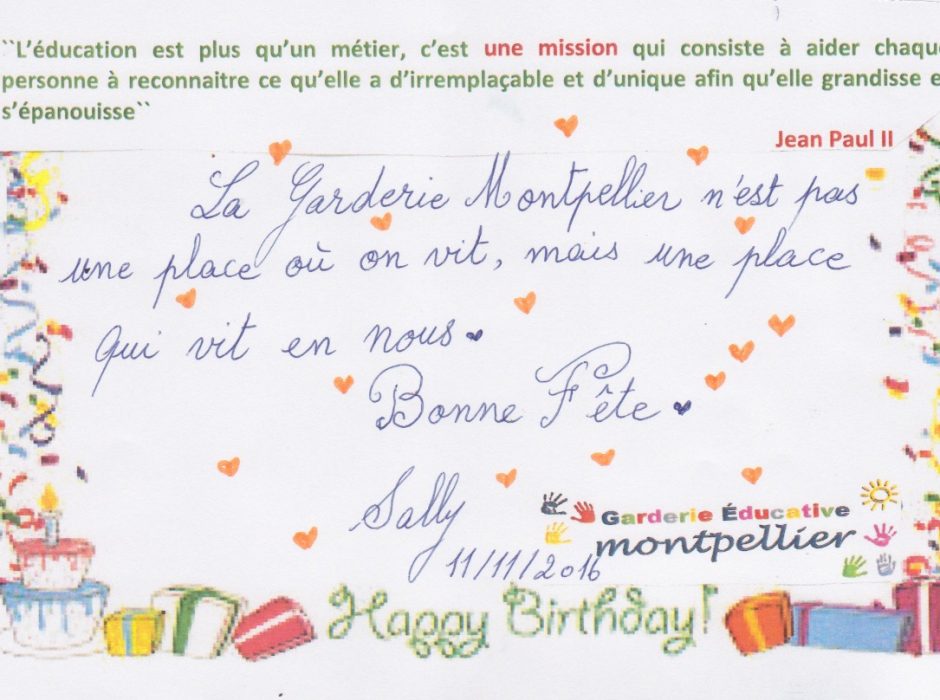 ``L'éducation est plus qu'un métier, c'est une mission qui consiste à aider chaqu
personne à reconnaitre ce qu'elle a d'irremplaçable et d'unique afin qu'elle grandisse e
s'épanouisse``
Jean Paul II
La Garderie Montpellier n'est pas
une place où on vit, mais une place
qui vit en nous.
Bonne Fête.
Sally
11/11/2016
Garderie Éducative
montpellier
Happy Birthday!